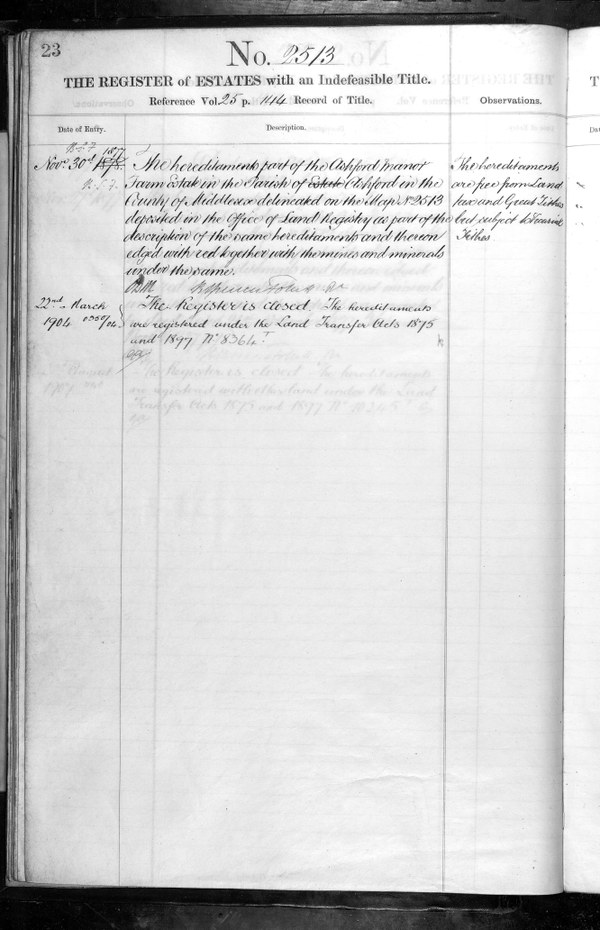 23
No. 2513
THE REGISTER of ESTATES with an Indefeasible Title.
Reference Vol. 25 p. 144 Record of Title.
Observations.
Date of Entry.
Description.
1877
Nov. 30th 1878.
The hereditaments part of the Ashford Manor
Farm Estate in the Parish of Estate Ashford in the
County of Middlesex delineated on the Map No 2513
deposited in the Office of Land Registry as part of the
description of the same hereditaments and thereon
edged with red together with the mines and minerals
under the same.
The hereditaments
are free from Land
tax and Great Tithes
but subject to
Tithes
22nd March
1904
The Register is closed. The hereditaments
are registered under the Land Transfer Acts 1875
and 1897 No 8364